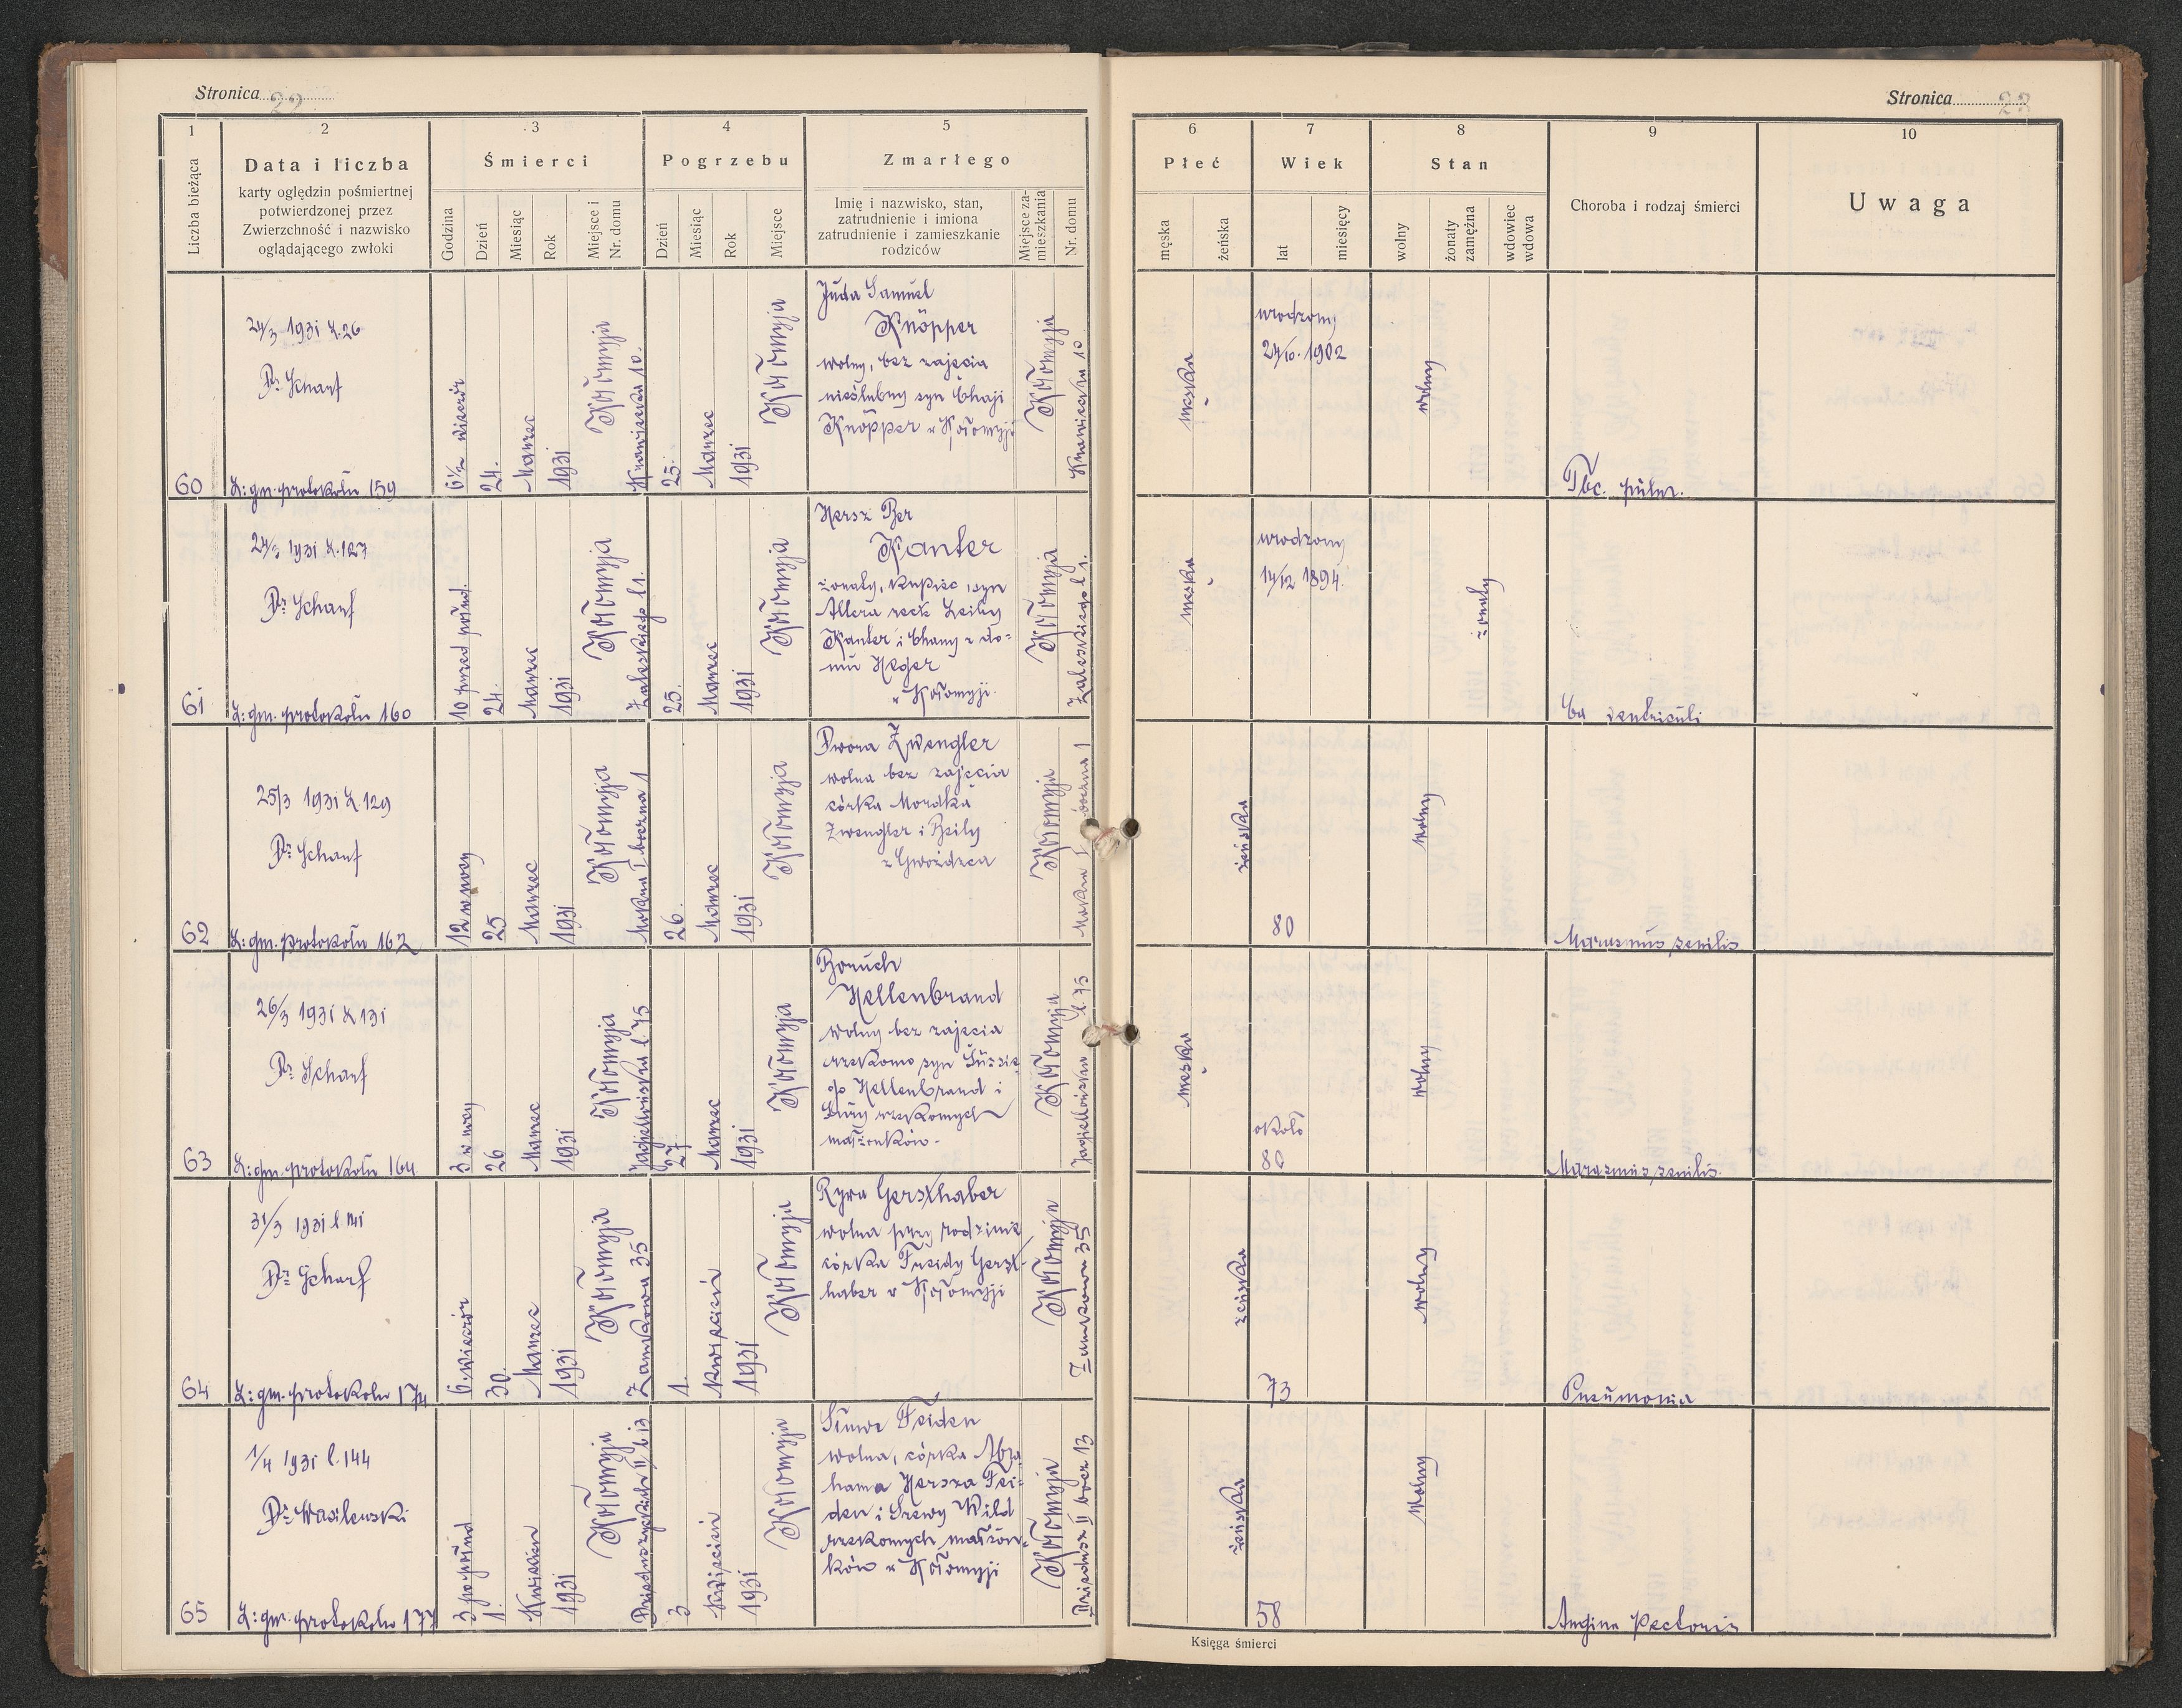 Stronica 22
1
2
3
4
5
Liczba bieżąca
Data i liczba
karty oględzin pośmiertnej
potwierdzonej przez
Zwierzchność i nazwisko
oglądającego zwłoki
Śmierci
Godzina
Dzień
Miesiąc
Rok
Miejsce i
Nr. domu
Pogrzebu
Dzień
Miesiąc
Rok
Miejsce
Zmarłego
Imię i nazwisko, stan,
zatrudnienie i imiona
zatrudnienie i zamieszkanie
rodziców
Miejsce za-
mieszkania
Nr. domu
60
24/3 1931 L.26
Dr Scharf
L: gm. protokołu 159
6½ wieczór
24.
Marzec
1931
Kołomyja
Krawiecka 10.
25.
Marzec
1931
Kołomyja
Juda Samuel
Knöpper
wolny, bez zajęcia
nieślubny syn Chaji
Knöpper z Kołomyji
Kołomyja
Krawiecka 10
61
24/3 1931 L.127
Dr Scharf
L: gm. protokołu 160
10 przed połud.
24.
Marzec
1931
Kołomyja
Zaleskiego l 1.
25.
Marzec
1931
Kołomyja
Hersz Ber
Kanter
żonaty, kupiec, syn
Altera recte Leiby
Kanter i Chany z do=
mu Heger
z Kołomyji.
Kołomyja
Zaleskiego l 1.
62
25/3 1931 L 129
Dr Scharf
L: gm. protokołu 162
12 w nocy
25
Marzec
1931
Kołomyja
Mokra I boczna 1
26.
Marzec
1931
Kołomyja
Dwora Zwengler
wolna bez zajęcia
córka Mordka
Zwengler i Beily
z Gwoźdzca
Kołomyja
Mokra I boczna 1
63
26/3 1931 L 131
Dr Scharf
L: gm. protokołu 164
3 w nocy
26
Marzec
1931
Kołomyja
Jagiellońska l 75
27
Marzec
1931
Kołomyja
Boruch
Hellenbrand
wolny bez zajęcia
rzekomo syn
go Hellenbrand i
Sury rzekomych
małżonków.
Kołomyja
Jagiellońska l. 75
64
31/3 1931 l 141
Dr Scharf
L: gm. protokołu 174
6. wieczór
30.
Marzec
1931
Kołomyja
Zamkowa 35
1.
Kwiecień
1931
Kołomyja
Rywa Gersthaber
wolna przy rodzinie
córka Freidy Gerst-
haber z Kołomyji
Kołomyja
Zamkowa 35
65
1/4 1931 l. 144
Dr Wasilewski
L: gm. protokołu 177
3 po połud
1.
Kwiecień
1931
Kołomyja
Dzieduszyckich II b 13
3
Kwiecień
1931
Kołomyja
Feiden
wolna, córka Abra
hama Hersza Fei=
den i Wild
rzekomych małżon=
ków z Kołomyji
Kołomyja
Dziedusz II bocz 13
Stronica 23
6
7
8
9
10
Płeć
męska
żeńska
Wiek
lat
miesięcy
Stan
wolny
żonaty
zamężna
wdowiec
wdowa
Choroba i rodzaj śmierci
Uwaga
męska
urodzony
24/10. 1902
wolny
Tbc. pulm.
męska
urodzony
14/12 1894.
żonaty
Ca ventriculi
żeńska
80
wolny
Marasmus senilis
męska
około
80
wolny
Marasmus senilis.
żeńska
73
wolny
Pneumonia
żeńska
58
wolny
Angina Pectoris
Księga śmierci